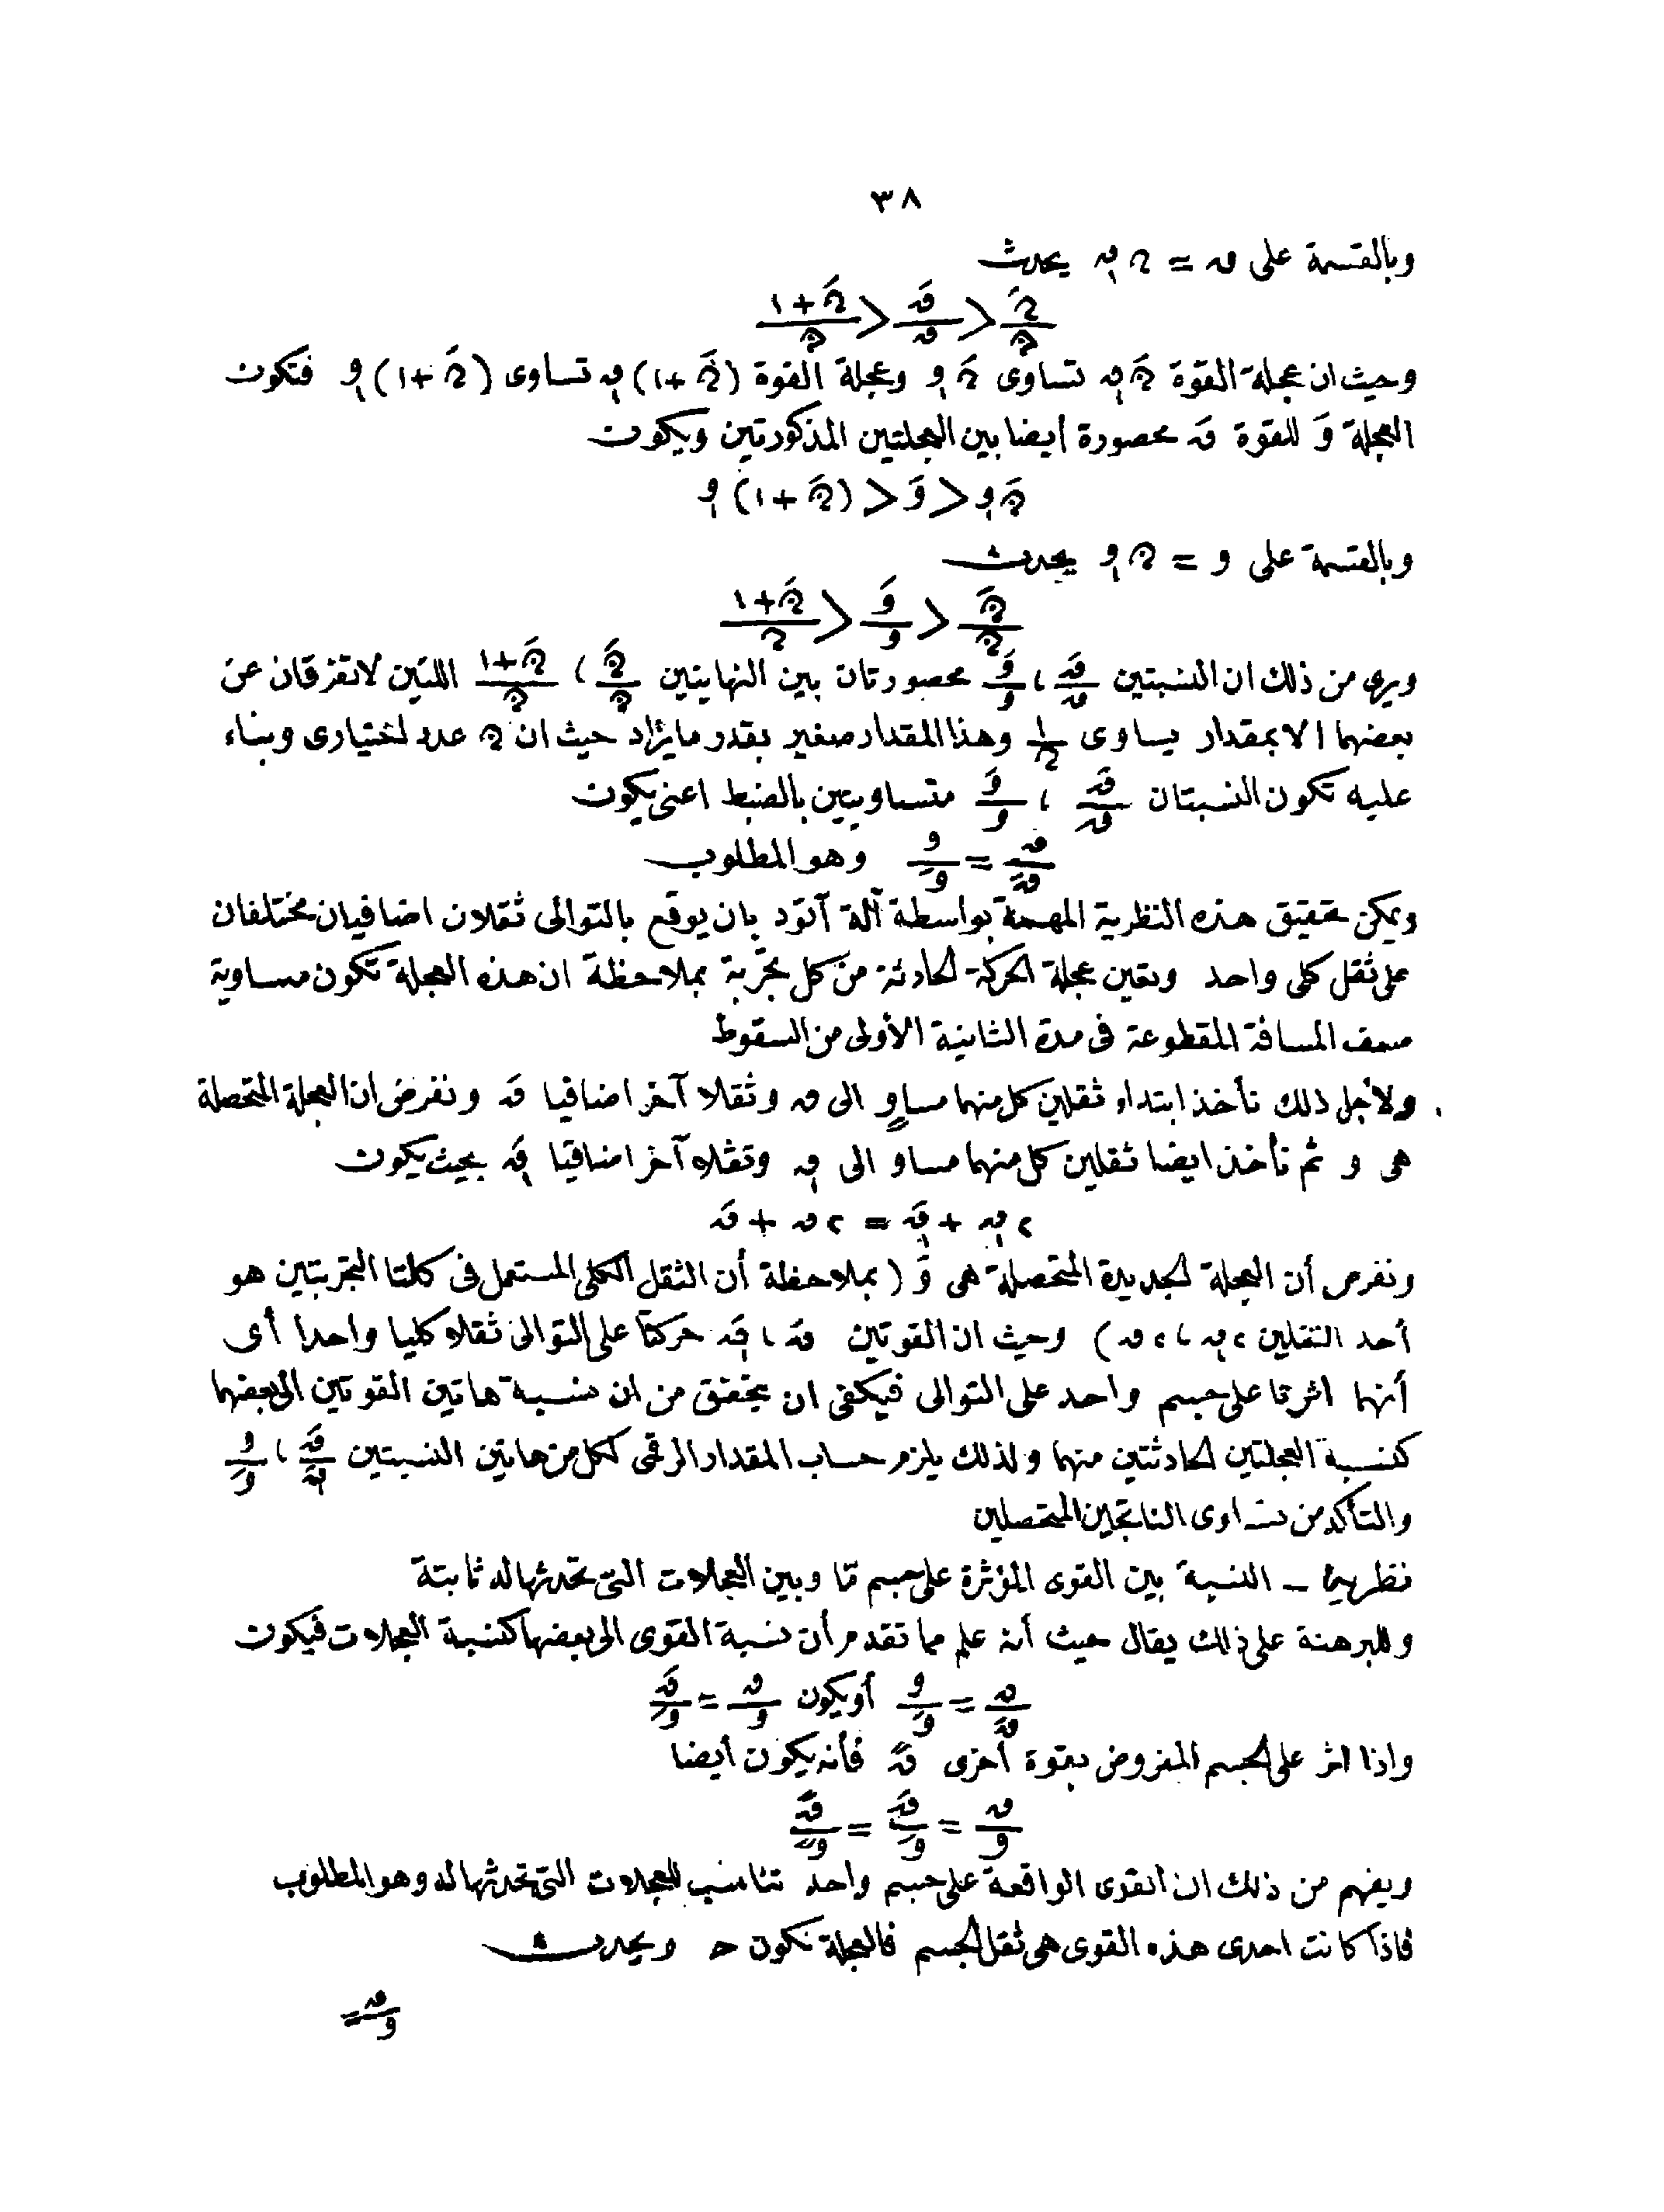 ٣٨
وبالقسمة على ق = ن ق₁ يحدث
ن َ/ن < ق َ/ق < (ن َ+١)/ن
وحيث ان عجلة القوة ن َ ق₁ تساوى ن َ و₁ وعجلة القوة (ن َ+١) ق₁ تساوى (ن َ+١) و₁ فتكون
العجلة و َ للقوة ق َ محصورة أيضا بين العجلتين المذكورتين ويكون
ن َ و₁ < و َ < (ن َ+١) و₁
وبالقسمة على و = ن و₁ يحدث
ن َ/ن < و َ/و < (ن َ+١)/ن
ويرى من ذلك ان النسبتين ق َ/ق ، و َ/و محصورتان بين النهايتين ن َ/ن ، (ن َ+١)/ن اللتين لاتفرقان عن
بعضهما الا بمقدار يساوى ١/ن وهذا المقدار صغير بقدر مايراد حيث ان ن عدد اختيارى وبناء
عليه تكون النسبتان ق َ/ق ، و َ/و متساويتين بالضبط اعنى يكون
ق/ق َ = و/و َ وهو المطلوب
ويمكن تحقيق هذه النظرية المهمة بواسطة آلة آتود بان يوقع بالتوالى ثقلان اضافيان مختلفان
على ثقل كلى واحد وتعين عجلة الحركة الحادثة من كل تجربة بملاحظة ان هذه العجلة تكون مساوية
ضعف المسافة المقطوعة فى مدة الثانية الأولى من السقوط
ولأجل ذلك نأخذ ابتداء ثقلين كل منهما مساوٍ الى ق وثقلا آخر اضافيا ق َ ونفرض ان العجلة المتحصلة
هى و ثم نأخذ ايضا ثقلين كل منهما مساو الى ق₁ وثقلا آخر اضافيا ق₁َ بحيث يكون
٢ق₁ + ق₁َ = ٢ق + ق َ
ونفرض أن العجلة الجديدة المتحصلة هى و َ (بملاحظة أن الثقل الكلى المستعمل فى كلتا التجربتين هو
أحد الثقلين ٢ق₁ ، ٢ق) وحيث ان القوتين ق َ ، ق₁َ حركتا على التوالى ثقلا كليا واحدا أى
أنهما اثرتا على جسم واحد على التوالى فيكفى ان يتحقق من ان نسبة هاتين القوتين الى بعضهما
كنسبة العجلتين الحادثتين منهما ولذلك يلزم حساب المقدار الرقمى لكل من هاتين النسبتين ق َ/ق₁َ ، و/و َ
والتأكد من تساوى الناتجين المتحصلين
نظرية — النسبة بين القوى المؤثرة على جسم مّا وبين العجلات التى تحدثها له ثابتة
وللبرهنة على ذلك يقال حيث أنه علم مما تقدم أن نسبة القوى الى بعضها كنسبة العجلات فيكون
ق/ق َ = و/و َ أو يكون ق/و = ق َ/و َ
واذا اثر على الجسم المفروض بقوة أخرى ق ً فأنه يكون أيضا
ق/و = ق َ/و َ = ق ً/و ً
ويفهم من ذلك ان القوى الواقعة على جسم واحد تناسب للعجلات التى تحدثها له وهو المطلوب
فاذا كانت احدى هذه القوى هى ثقل الجسم فالعجلة تكون ح ويحدث
ق/و =